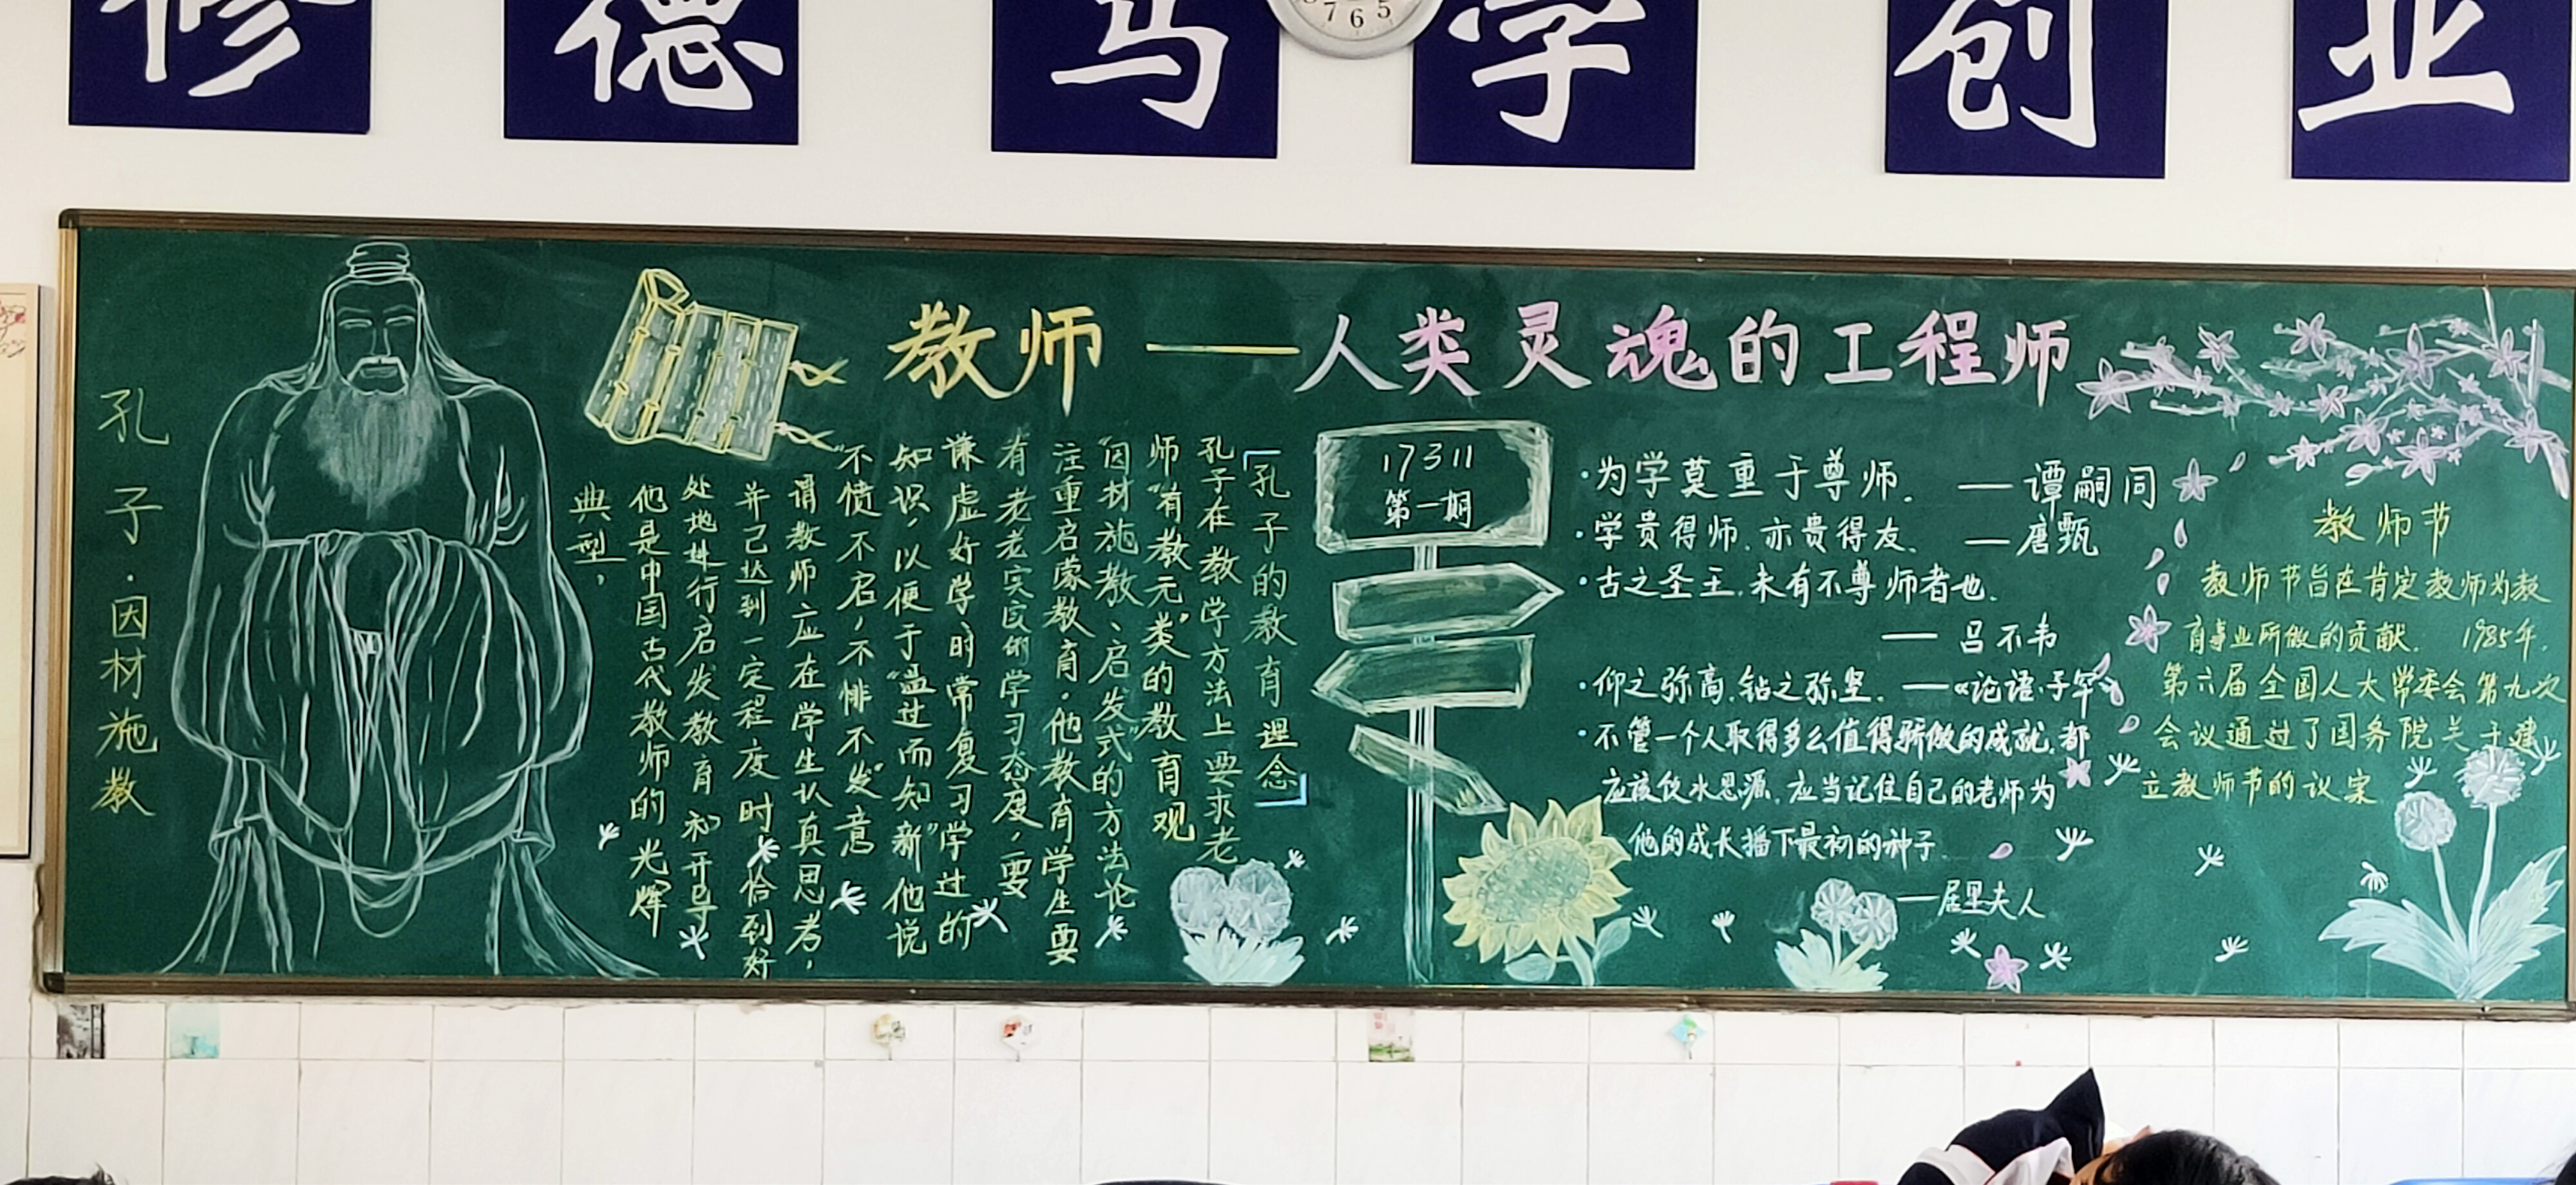 修德 笃学 创业
7 6 5
教师——人类灵魂的工程师
孔子·因材施教
「孔子的教育理念」
孔子在教学方法上要求老
师“有教无类”的教育观
“因材施教、启发式”的方法论
注重启蒙教育。他教育学生要
有老老实实的学习态度，要
谦虚好学、时常复习学过的
知识，以便于“温过而知新”他说
“不愤不启，不悱不发”意
谓教师应在学生认真思考，
并己达到一定程度时恰到好
处地进行启发教育和开导
他是中国古代教师的光辉
典型，
17311
第一期
·为学莫重于尊师. ——谭嗣同
·学贵得师.亦贵得友. ——唐甄
·古之圣王.未有不尊师者也.
——吕不韦
·仰之弥高.钻之弥坚. ——《论语·子罕》
·不管一个人取得多么值得骄傲的成就.都
应该饮水思源.应当记住自己的老师为
他的成长播下最初的种子.
——居里夫人
教师节
教师节旨在肯定教师为教
育事业所做的贡献. 1985年.
第六届全国人大常委会第九次
会议通过了国务院关于建
立教师节的议案